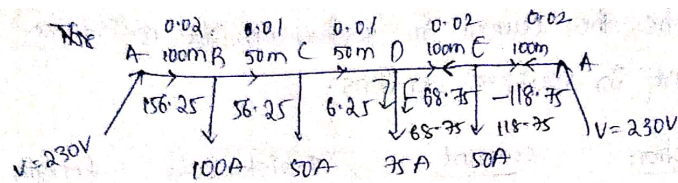 0.02 0.01 0.01 0.02 0.02
A 100m B 50m C 50m D 100m E 100m A
156.25 56.25 6.25 68.75 -118.75
68.75 118.75
V=230V V=230V
100A 50A 75A 50A